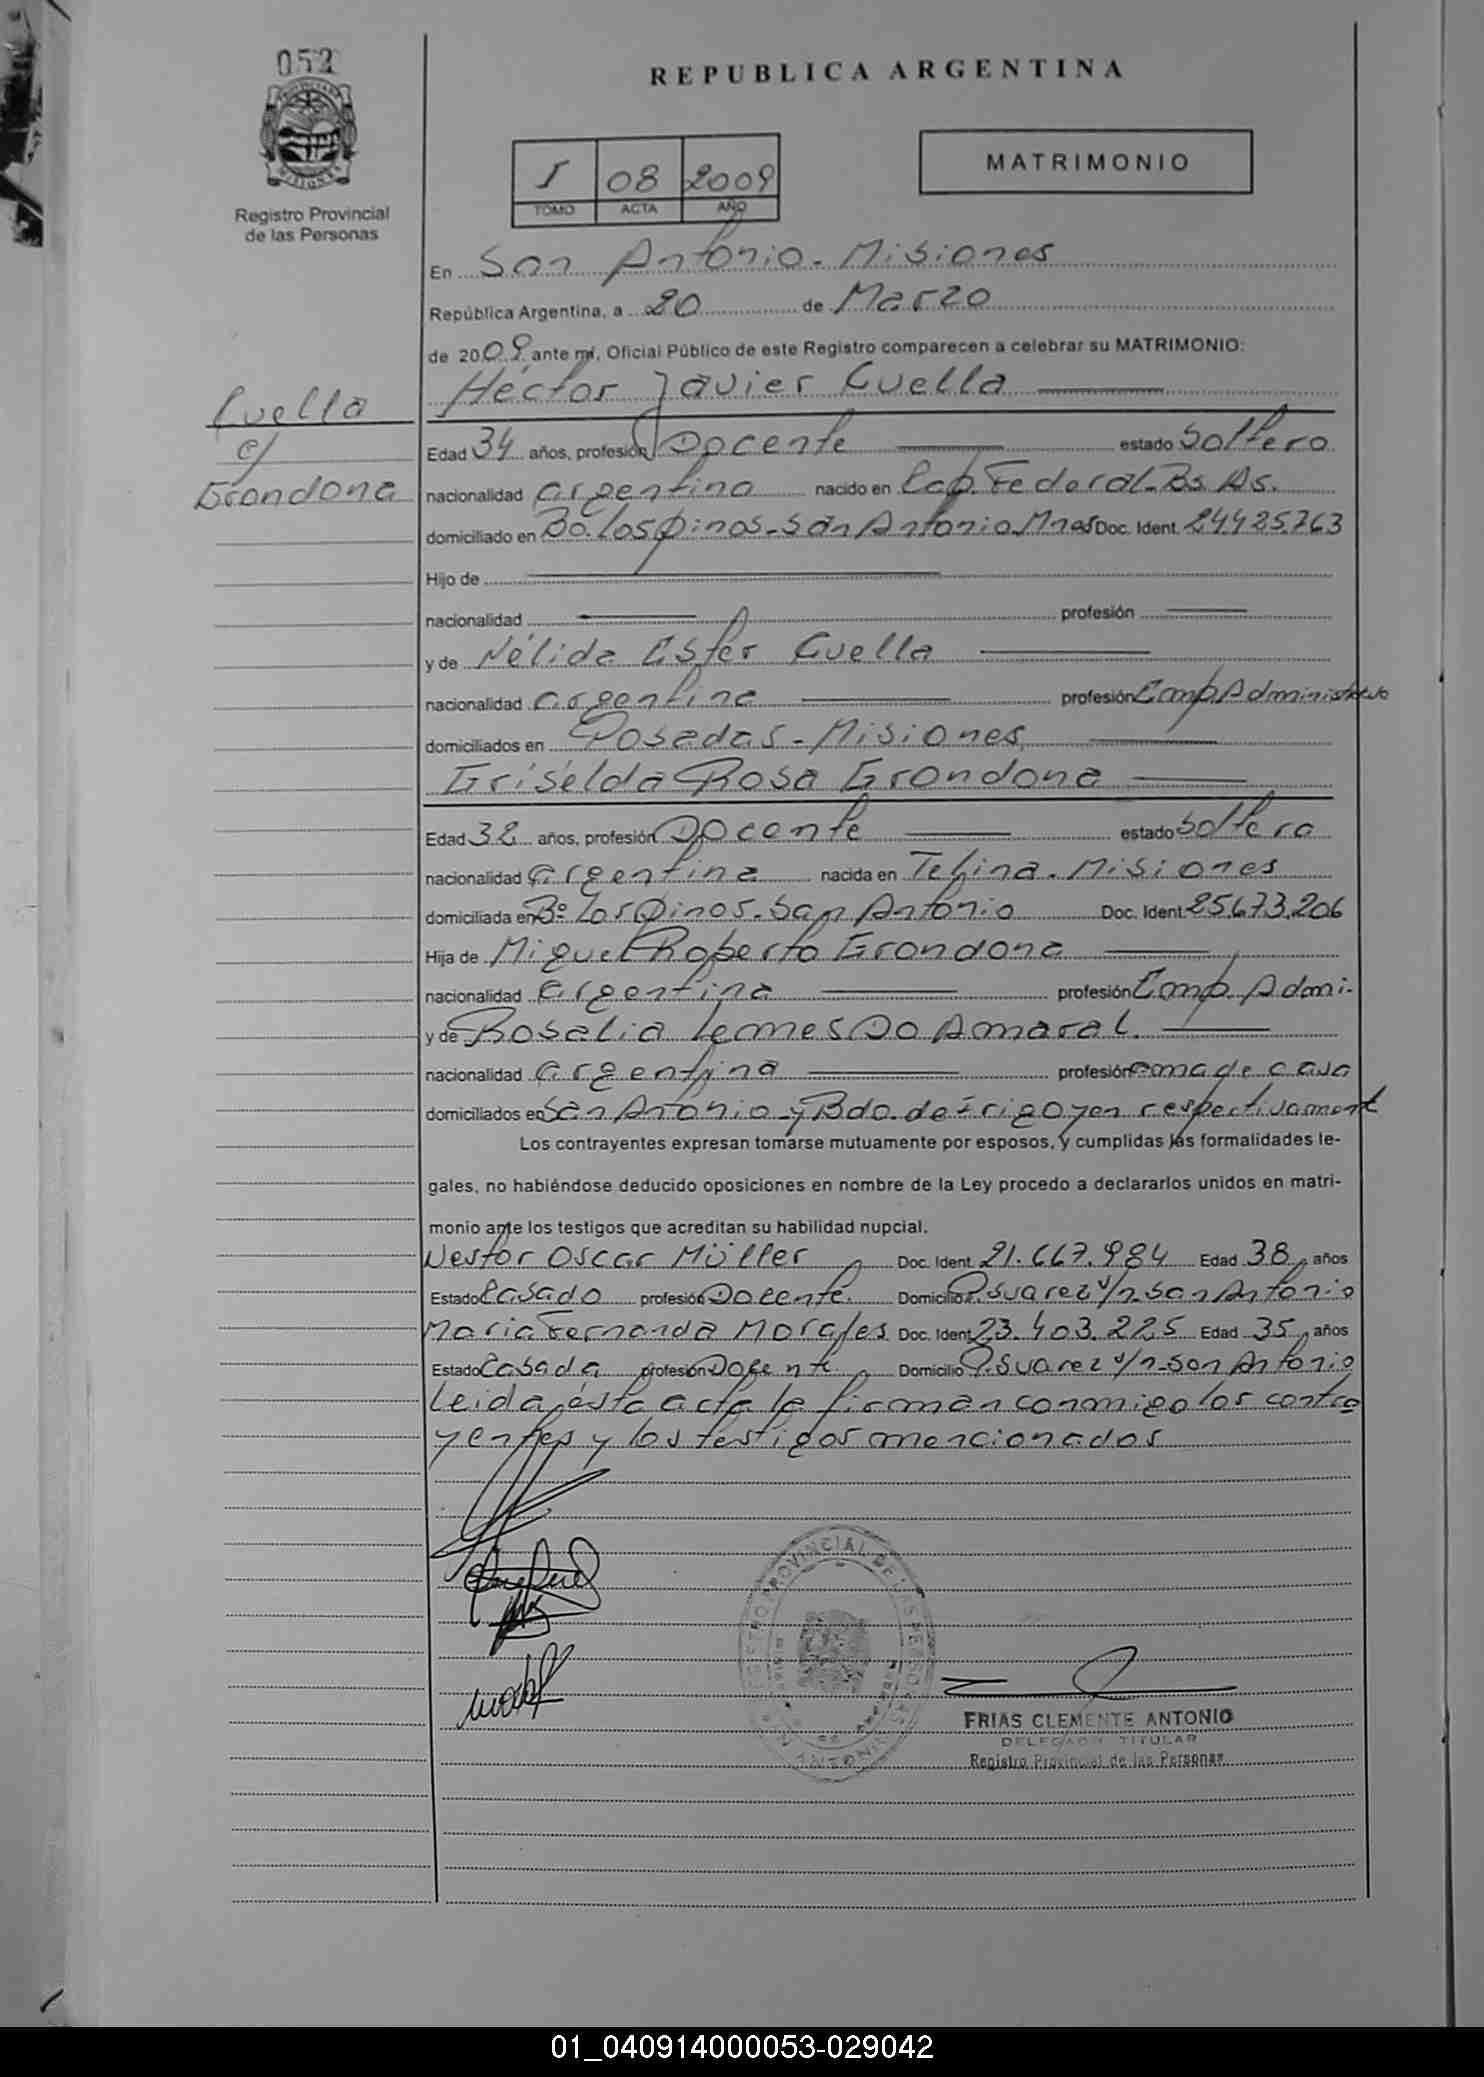 052
PROVINCIA DE
MISIONES
Registro Provincial
de las Personas
REPUBLICA ARGENTINA
I 08 2009
TOMO ACTA AÑO
MATRIMONIO
En San Antonio - Misiones
República Argentina, a 20 de Marzo
de 2009 ante mí, Oficial Público de este Registro comparecen a celebrar su MATRIMONIO:
Cuella
c/
Grondona
Héctor Javier Cuella
Edad 34 años, profesión Docente estado Soltero
nacionalidad argentino nacido en Cap. Federal - Bs As.
domiciliado en Bo. Los pinos - San Antonio Mnes Doc. Ident. 24.425.763
Hijo de
nacionalidad profesión
y de Nélida Ester Cuella
nacionalidad argentina profesión Emp Administrativo
domiciliados en Posadas - Misiones
Griselda Rosa Grondona
Edad 32 años, profesión Docente estado Soltera
nacionalidad argentina nacida en Misiones
domiciliada en Bº Los Pinos - San Antonio Doc. Ident 25.673.206
Hija de Miguel Roberto Grondona
nacionalidad argentina profesión Emp. Admi-
y de Rosalia Lemes Do Amaral
nacionalidad argentina profesión ama de casa
domiciliados en San Antonio y Bdo. de Irigoyen respectivament
Los contrayentes expresan tomarse mutuamente por esposos, y cumplidas las formalidades le-
gales, no habiéndose deducido oposiciones en nombre de la Ley procedo a declararlos unidos en matri-
monio ante los testigos que acreditan su habilidad nupcial.
Nestor Oscar Müller Doc. Ident. 21.667.984 Edad 38 años
Estado Casado profesión Docente. Domicilio P. Suarez s/n - San Antonio
Maria Fernanda Morales Doc. Ident 23.403.225 Edad 35 años
Estado Casada profesión Docente Domicilio P. Suarez s/n - San Antonio
Leida ésta acta la firman conmigo los contra
yentes y los testigos mencionados
REGISTRO PROVINCIAL DE LAS PERSONAS
SAN ANTONIO
FRIAS CLEMENTE ANTONIO
DELEGADO TITULAR
Registro Provincial de las Personas
01_040914000053-029042